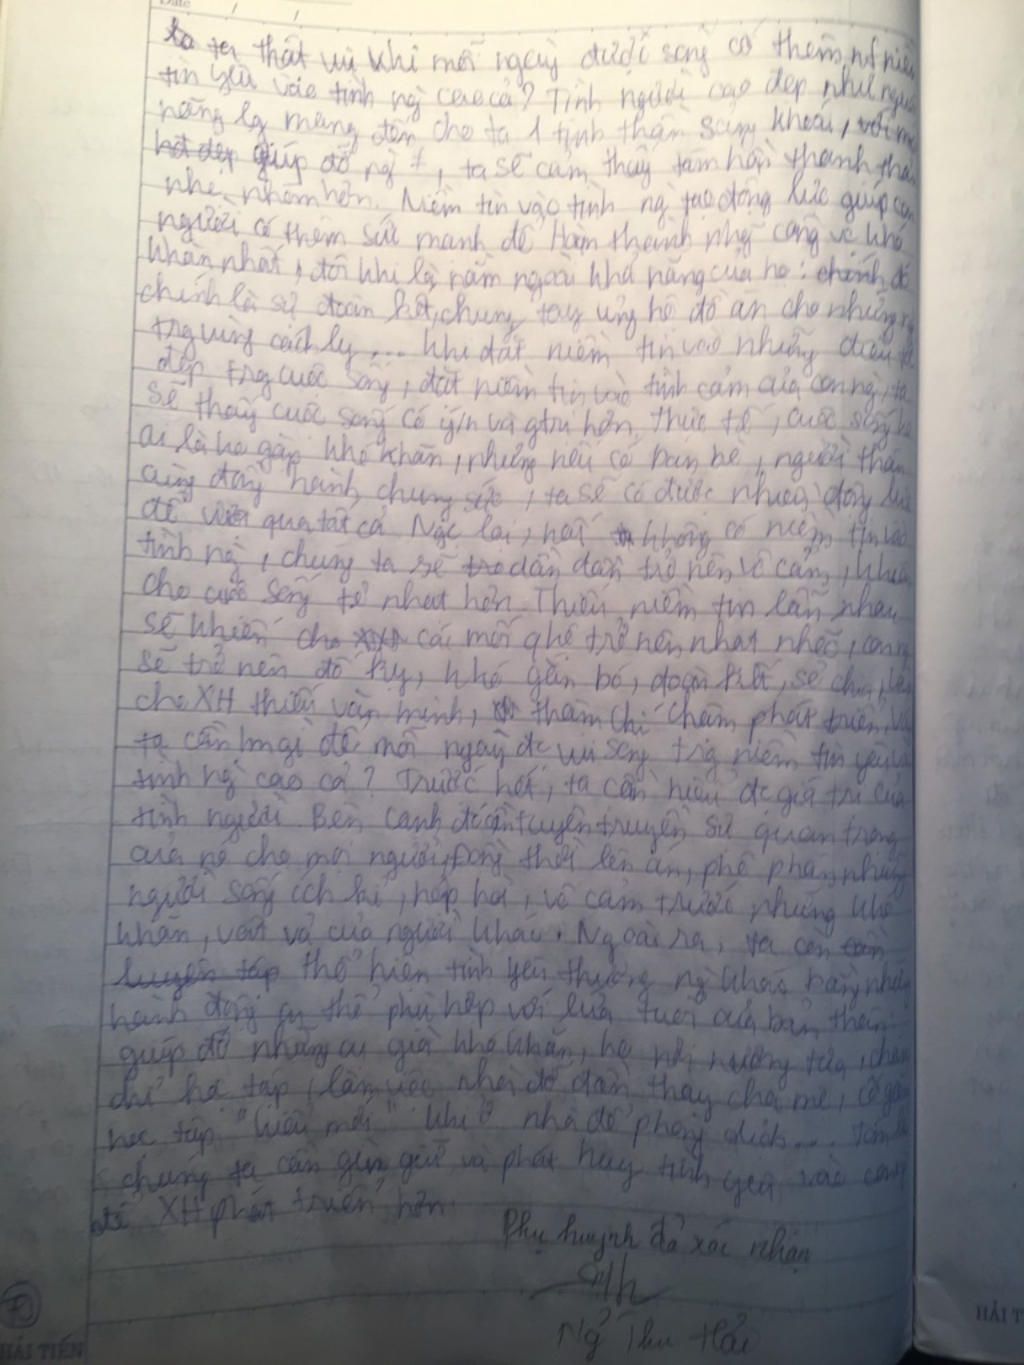 Date / /
ta thật vui khi mỗi ngày được sống có thêm niềm
tin yêu vào tình ng̀ cao cả? Tình người cao đẹp như nguồn
năng lg mang đến cho ta 1 tinh thần sảng khoái, với
giúp đỡ ng̀ ≠, ta sẽ cảm thấy tâm hồn thanh thản
nhẹ nhõm hơn. Niềm tin vào tình ng̀ tạo động lực giúp con
người có thêm sức mạnh để hoàn thành công vc khó
khăn nhất, đôi khi là nằm ngoài khả năng của họ: đó
chính là sự đoàn kết, chung tay ủng hộ đồ ăn cho những
trg vùng cách ly ... Khi đặt niềm tin vào những điều tốt
đẹp trg cuộc sống, đặt niềm tin vào tình cảm của con ng̀, ta
sẽ thấy cuộc sống có và gtrị hơn. Thực tế, cuộc sống
ai là ko gặp khó khăn, nhưng nếu có bạn bè, người thân
cùng đồng hành, chung sức, ta sẽ có được nhiều động lực
để vượt qua tất cả. Ngc lại, không có niềm tin vào
tình ng̀, chúng ta sẽ dần dần trở nên vô cảm, khiến
cho cuộc sống tẻ nhạt hơn. Thiếu niềm tin lẫn nhau
sẽ khiến các mối qhệ trở nên nhạt nhẽo, con ng̀
sẽ trở nên đố kỵ, khó gắn bó, đoàn kết, sẽ làm
cho XH thiếu văn minh, thậm chí chậm phát triển. Vậy
ta cần lm gì để mỗi ngày đc vui sống trg niềm tin yêu và
tình ng̀ cao cả? Trước hết, ta cần hiểu đc giá trị của
tình người. Bên cạnh đó cần tuyên truyền sự quan trọng
của nó cho mọi người. Đồng thời lên án, phê phán những
người sống ích kỉ, hẹp hòi, vô cảm trước những khó
khăn, vất vả của người khác. Ngoài ra, ta cần
thể hiện tình yêu thương ng̀ khác bằng những
hành động cụ thể phù hợp với lứa tuổi của bản thân:
giúp đỡ những cụ già khó khăn, ko nơi nương tựa, chăm
chỉ học tập, làm việc nhà đỡ đần thay cha mẹ, cố gắng
học tập "kiểu mới" khi ở nhà để phòng dịch ... Tóm lại
chúng ta cần gìn giữ và phát huy tình yêu vào con ng̀
để XH phát triển hơn.
Phụ huynh đã xác nhận
Ng̃ Thu Hải
HẢI TIẾN
HẢI T